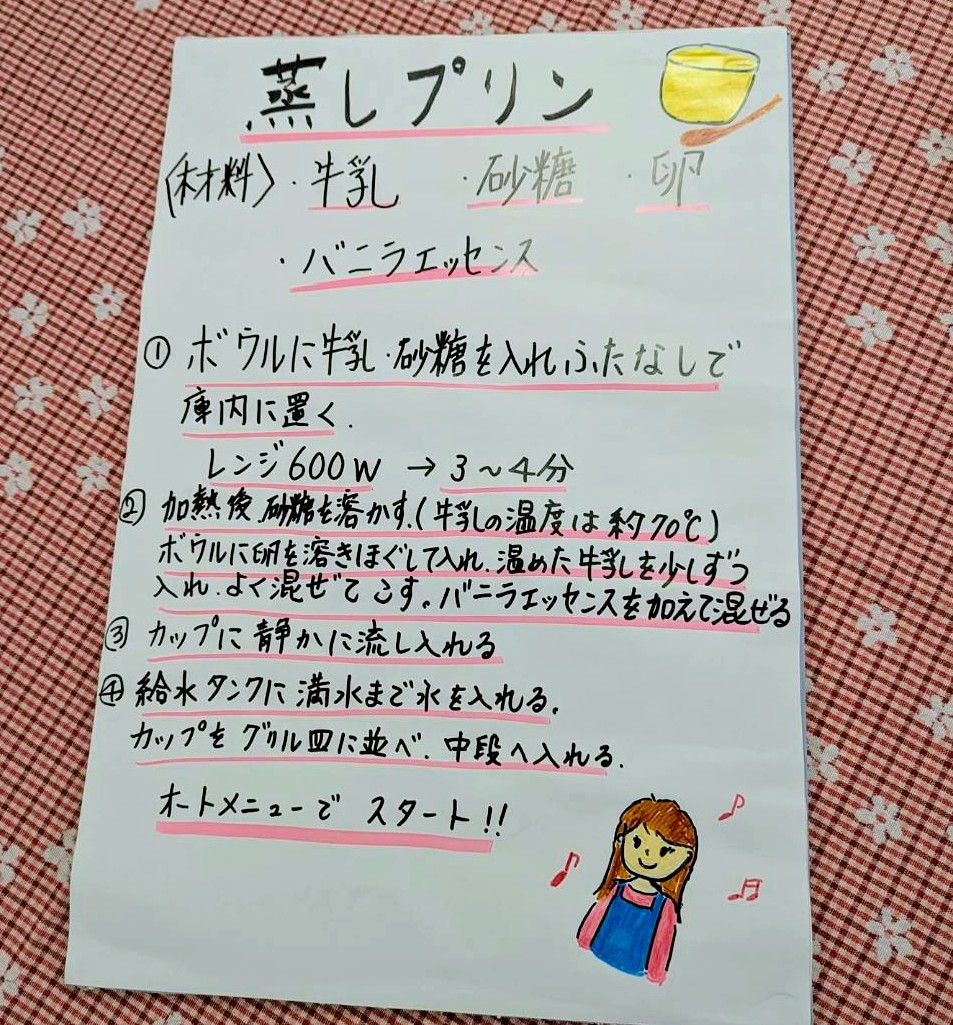 蒸しプリン
〈材料〉・牛乳 ・砂糖 ・卵
・バニラエッセンス
① ボウルに牛乳・砂糖を入れふたなしで
庫内に置く.
レンジ600W → 3～4分
② 加熱後、砂糖を溶かす.(牛乳の温度は約70℃)
ボウルに卵を溶きほぐして入れ、温めた牛乳を少しずつ
入れ、よく混ぜてこす。バニラエッセンスを加えて混ぜる
③ カップに静かに流し入れる
④ 給水タンクに満水まで水を入れる.
カップをグリル皿に並べ、中段へ入れる.
オートメニューでスタート!!